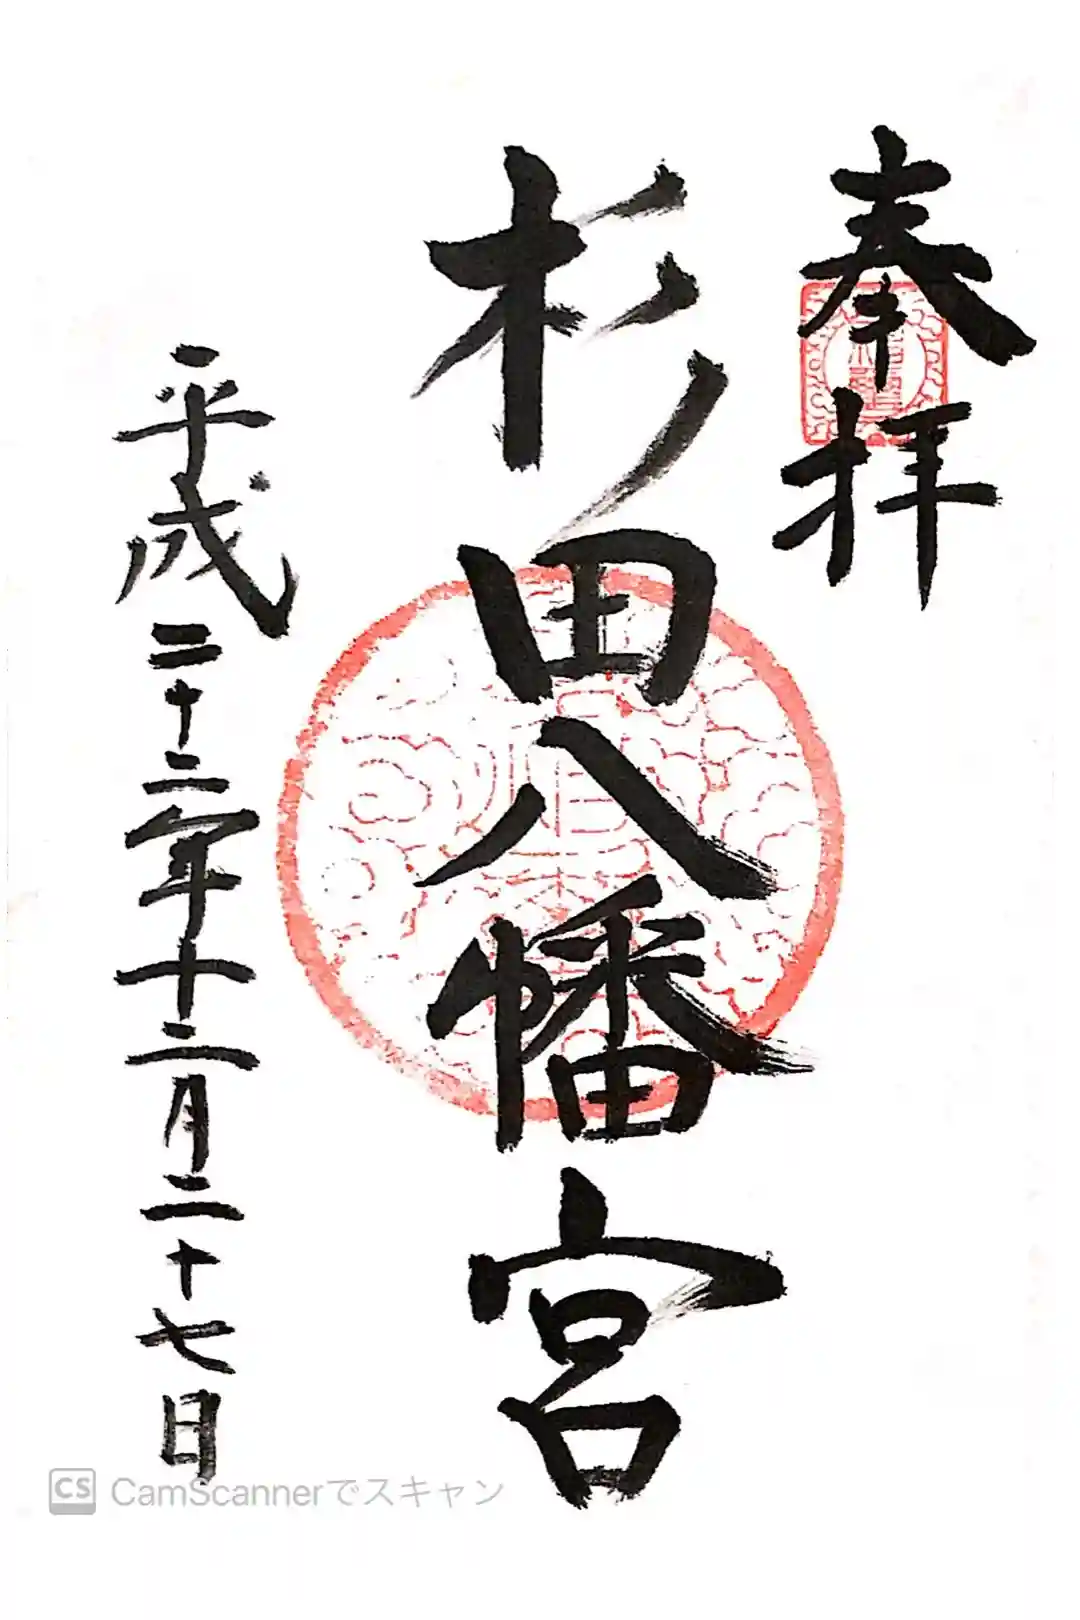 奉拝
杉田八幡宮
平成二十二年十二月二十七日
CS CamScannerでスキャン